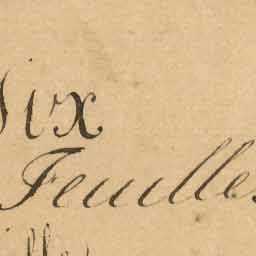 Six
Feuilles